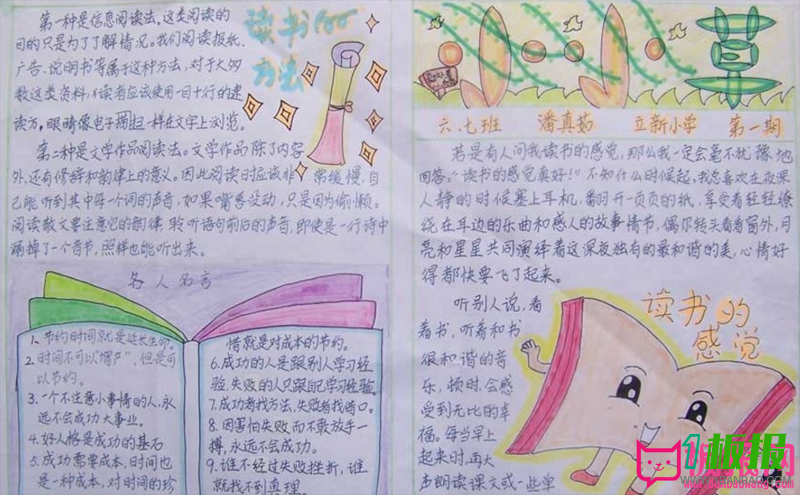 第一种是信息阅读法。这类阅读的
目的只是为了了解情况。我们阅读报纸、
广告、说明书等属于这种方法，对于大多
数这类资料，读者应该使用一目十行的速
读方，眼睛像电子扫描一样在文字上浏览。
第二种是文学作品阅读法。文学作品除了内容
外，还有修辞和韵律上的意义。因此阅读时应该非常缓慢，自
己能听到其中每一个词的声音，如果嘴唇没动，只是因为偷懒。
阅读散文要注意它的韵律，聆听语句前后的声音，即使是一行诗中
漏掉了一个音节，照样也能听出来。
读书的
方法
名人名言
1、节约时间就是延长生命。
2、时间不可以增产，但是可
以节约。
3、一个不注意小事情的人，永
远不会成功大事业。
4、好人格是成功的基石
5、成功需要成本，时间也
是一种成本，对时间的珍
惜就是对成本的节约。
6、成功的人是跟别人学习经
验，失败的人只跟自己学习经验。
7、成功者找方法，失败者找借口。
8、因害怕失败而不敢放手一
搏，永远不会成功。
9、谁不经过失败挫折，谁
就找不到真理
六、七班 潘真茹 立新小学 第一期
若是有人问我读书的感觉，那么我一定会毫不犹豫地
回答："读书的感觉真好！"不知什么时候起，我总喜欢在夜深
人静的时候塞上耳机，翻开一页页的纸，享受着轻轻缭
绕在耳边的乐曲和感人的故事情节，偶尔转头看看窗外，月
亮和星星共同演绎着这深夜独有的最和谐的美，心情好
得都快要飞了起来。
读书的
感觉
听别人说，看
着书，听着和书
很和谐的音
乐，顿时会感
受到无比的幸
福。每当早上
起来时，再大
声朗读课文或一些学
1板报